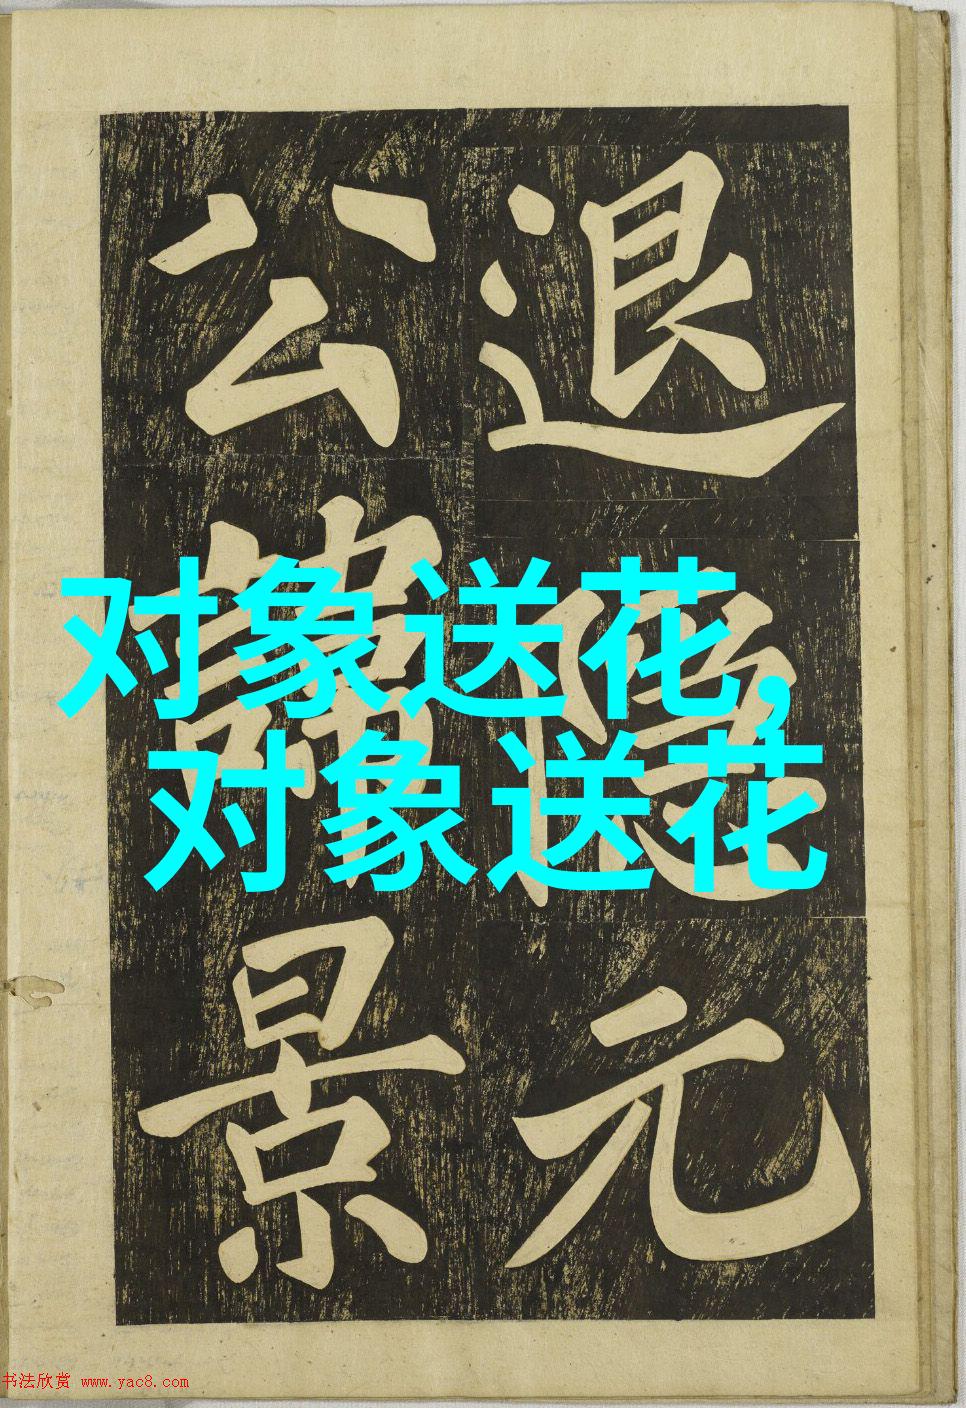 退隱元
公諱景
对象送花,
对象送花
书法欣赏 www.yac8.com